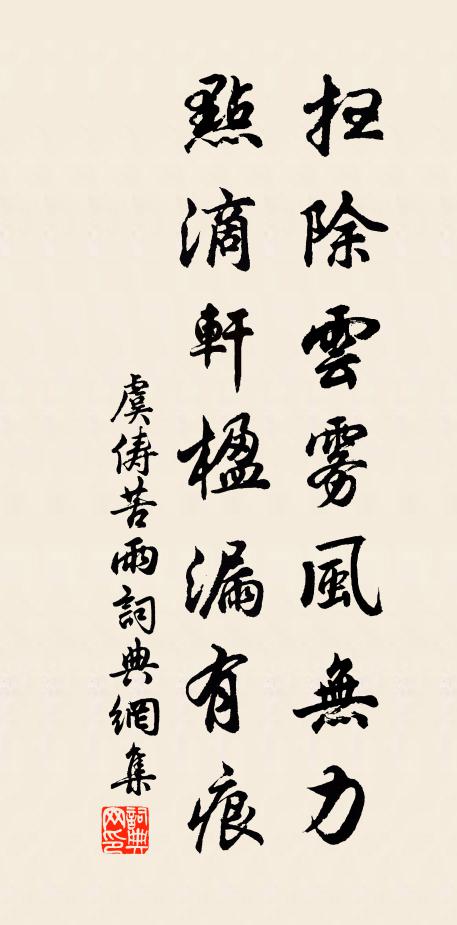 扫除雲霧風無力
點滴軒楹漏有痕
虞儔苦雨詞典網集
詞典网印